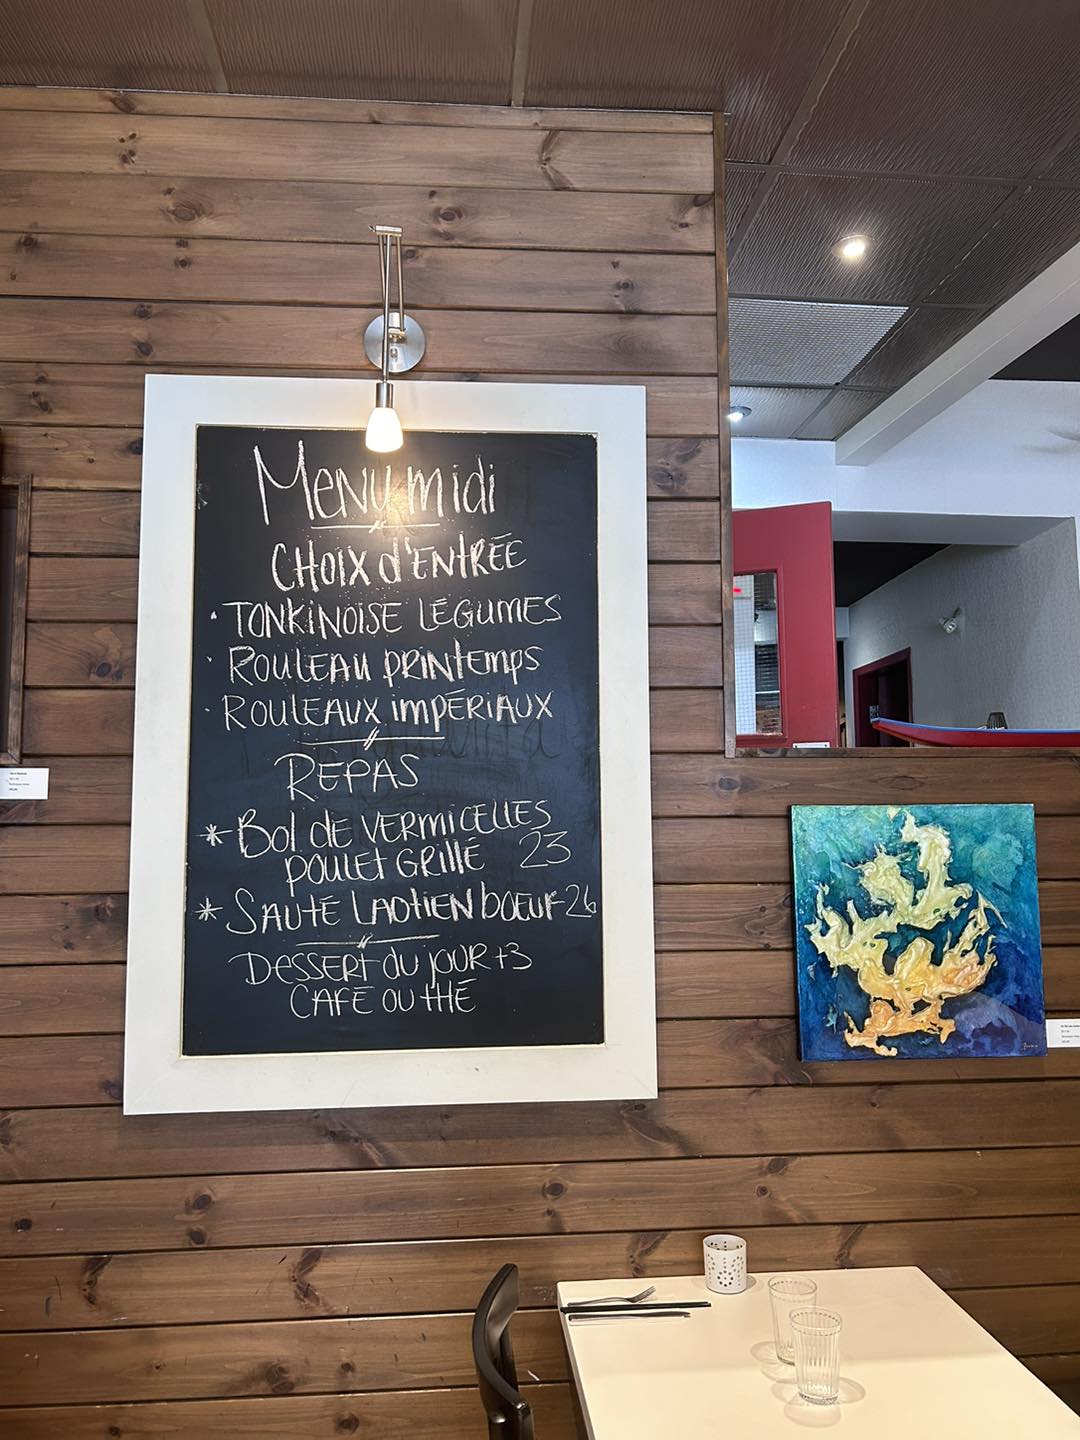 Menu midi
CHOIX d'ENTRÉE
· TONKINOISE LÉGUMES
· ROULEAU PRINTEMPS
· ROULEAUX IMPÉRIAUX
REPAS
* Bol de VERMICELLES
POULET GRILLÉ 23
* SAUTÉ LAOTIEN bOEUF 26
DESSERT du jour +3
CAFÉ OU THÉ